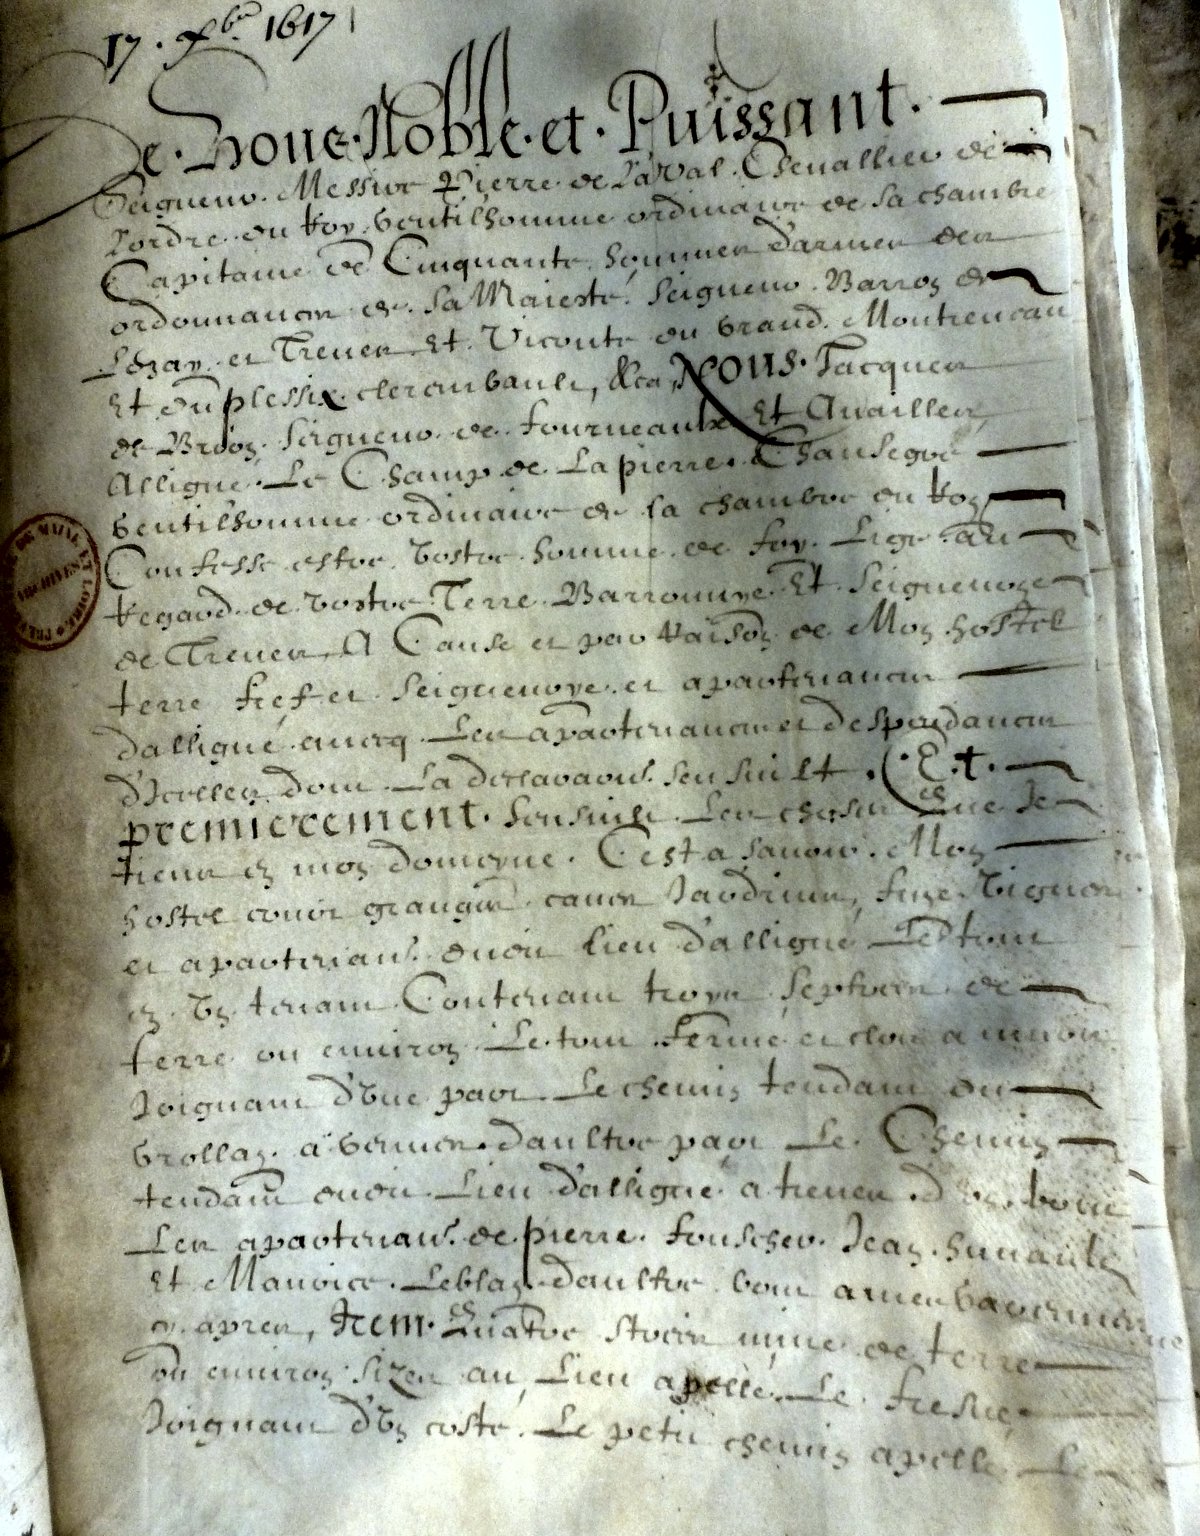 17. xbre 1617
De Vous Noble et Puissant
Seigneur Messire Pierre de Laval Chevallier de
Lordre du Roy gentilhomme ordinaire de sa chambre
Capitaine de Cinquante hommes d'armes des
ordonnances de sa Maiesté Seigneur Barron de
Lezay et Treves Et Viconte du grand Montreveau
Et du plessix clerembault, &ca, Nous Jacques
de Brion Seigneur de fourneaulx Et Availles
Alligné Le Champ de La pierre Chansegré
gentilhomme ordinaire de la chambre du Roy
Confesse estre vostre homme de foy Lige au
Regard de vostre Terre Barronnye Et Seigneurye
de Treves A Cause et par Raison de Mon hostel
terre fief et Seigneurye et apartenances
dalligné avecq Les apartenances et despendances
d'Icelles dont La declaraon sensuilt. Et
premierement. Sensuilt Les choses Que Je
tiens en mon domeyne. Cest a savoir. Mon
hostel cours granges caves Jardrins, fuye Vignes
et apartenans dudit lieu d'alligné Le tout
en Un tenant Contenant troys septrees de
terre ou environ Le tout fermé et clos a murs
Joignant d'Une part Le chemin tendant du
grollay a gennes daultre part Le Chemin
tendant dudit Lieu d'alligné a treves d'un bout
Les apartenans de pierre fouscher Jean hunault
Et Maurice Leblay daultre bout a mes
cy apres, Item Quatre sterees mine de terre
ou environ sizes au Lieu apellé Le fresne
Joignant d'Un costé Le petit chemin apellé Le
ARCHIVES
DE MAINE ET LOIRE